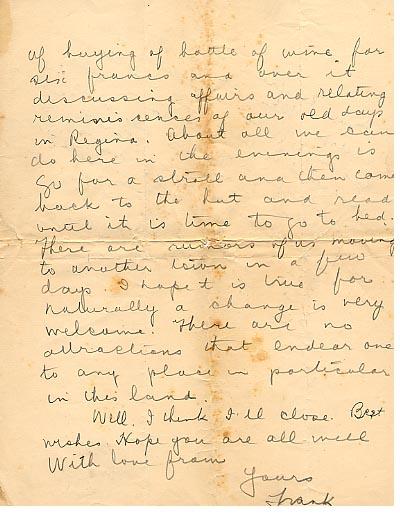 of buying of bottle of wine for
six francs and over it
discussing affairs and relating
reminiscenses of our old days
in Regina. About all we can
do here in the evenings is
go for a stroll and then come
back to the hut and read
until it is time to go to bed.
There are rumors of us moving
to another town in a few
days I hope t is true for
naturally a change is very
welcome. There are no
attractions that endear one
to any place in particular
in this land.
Well, I think I'll close. Best
wishes. Hope you are all well
With love from
Yours
Frank